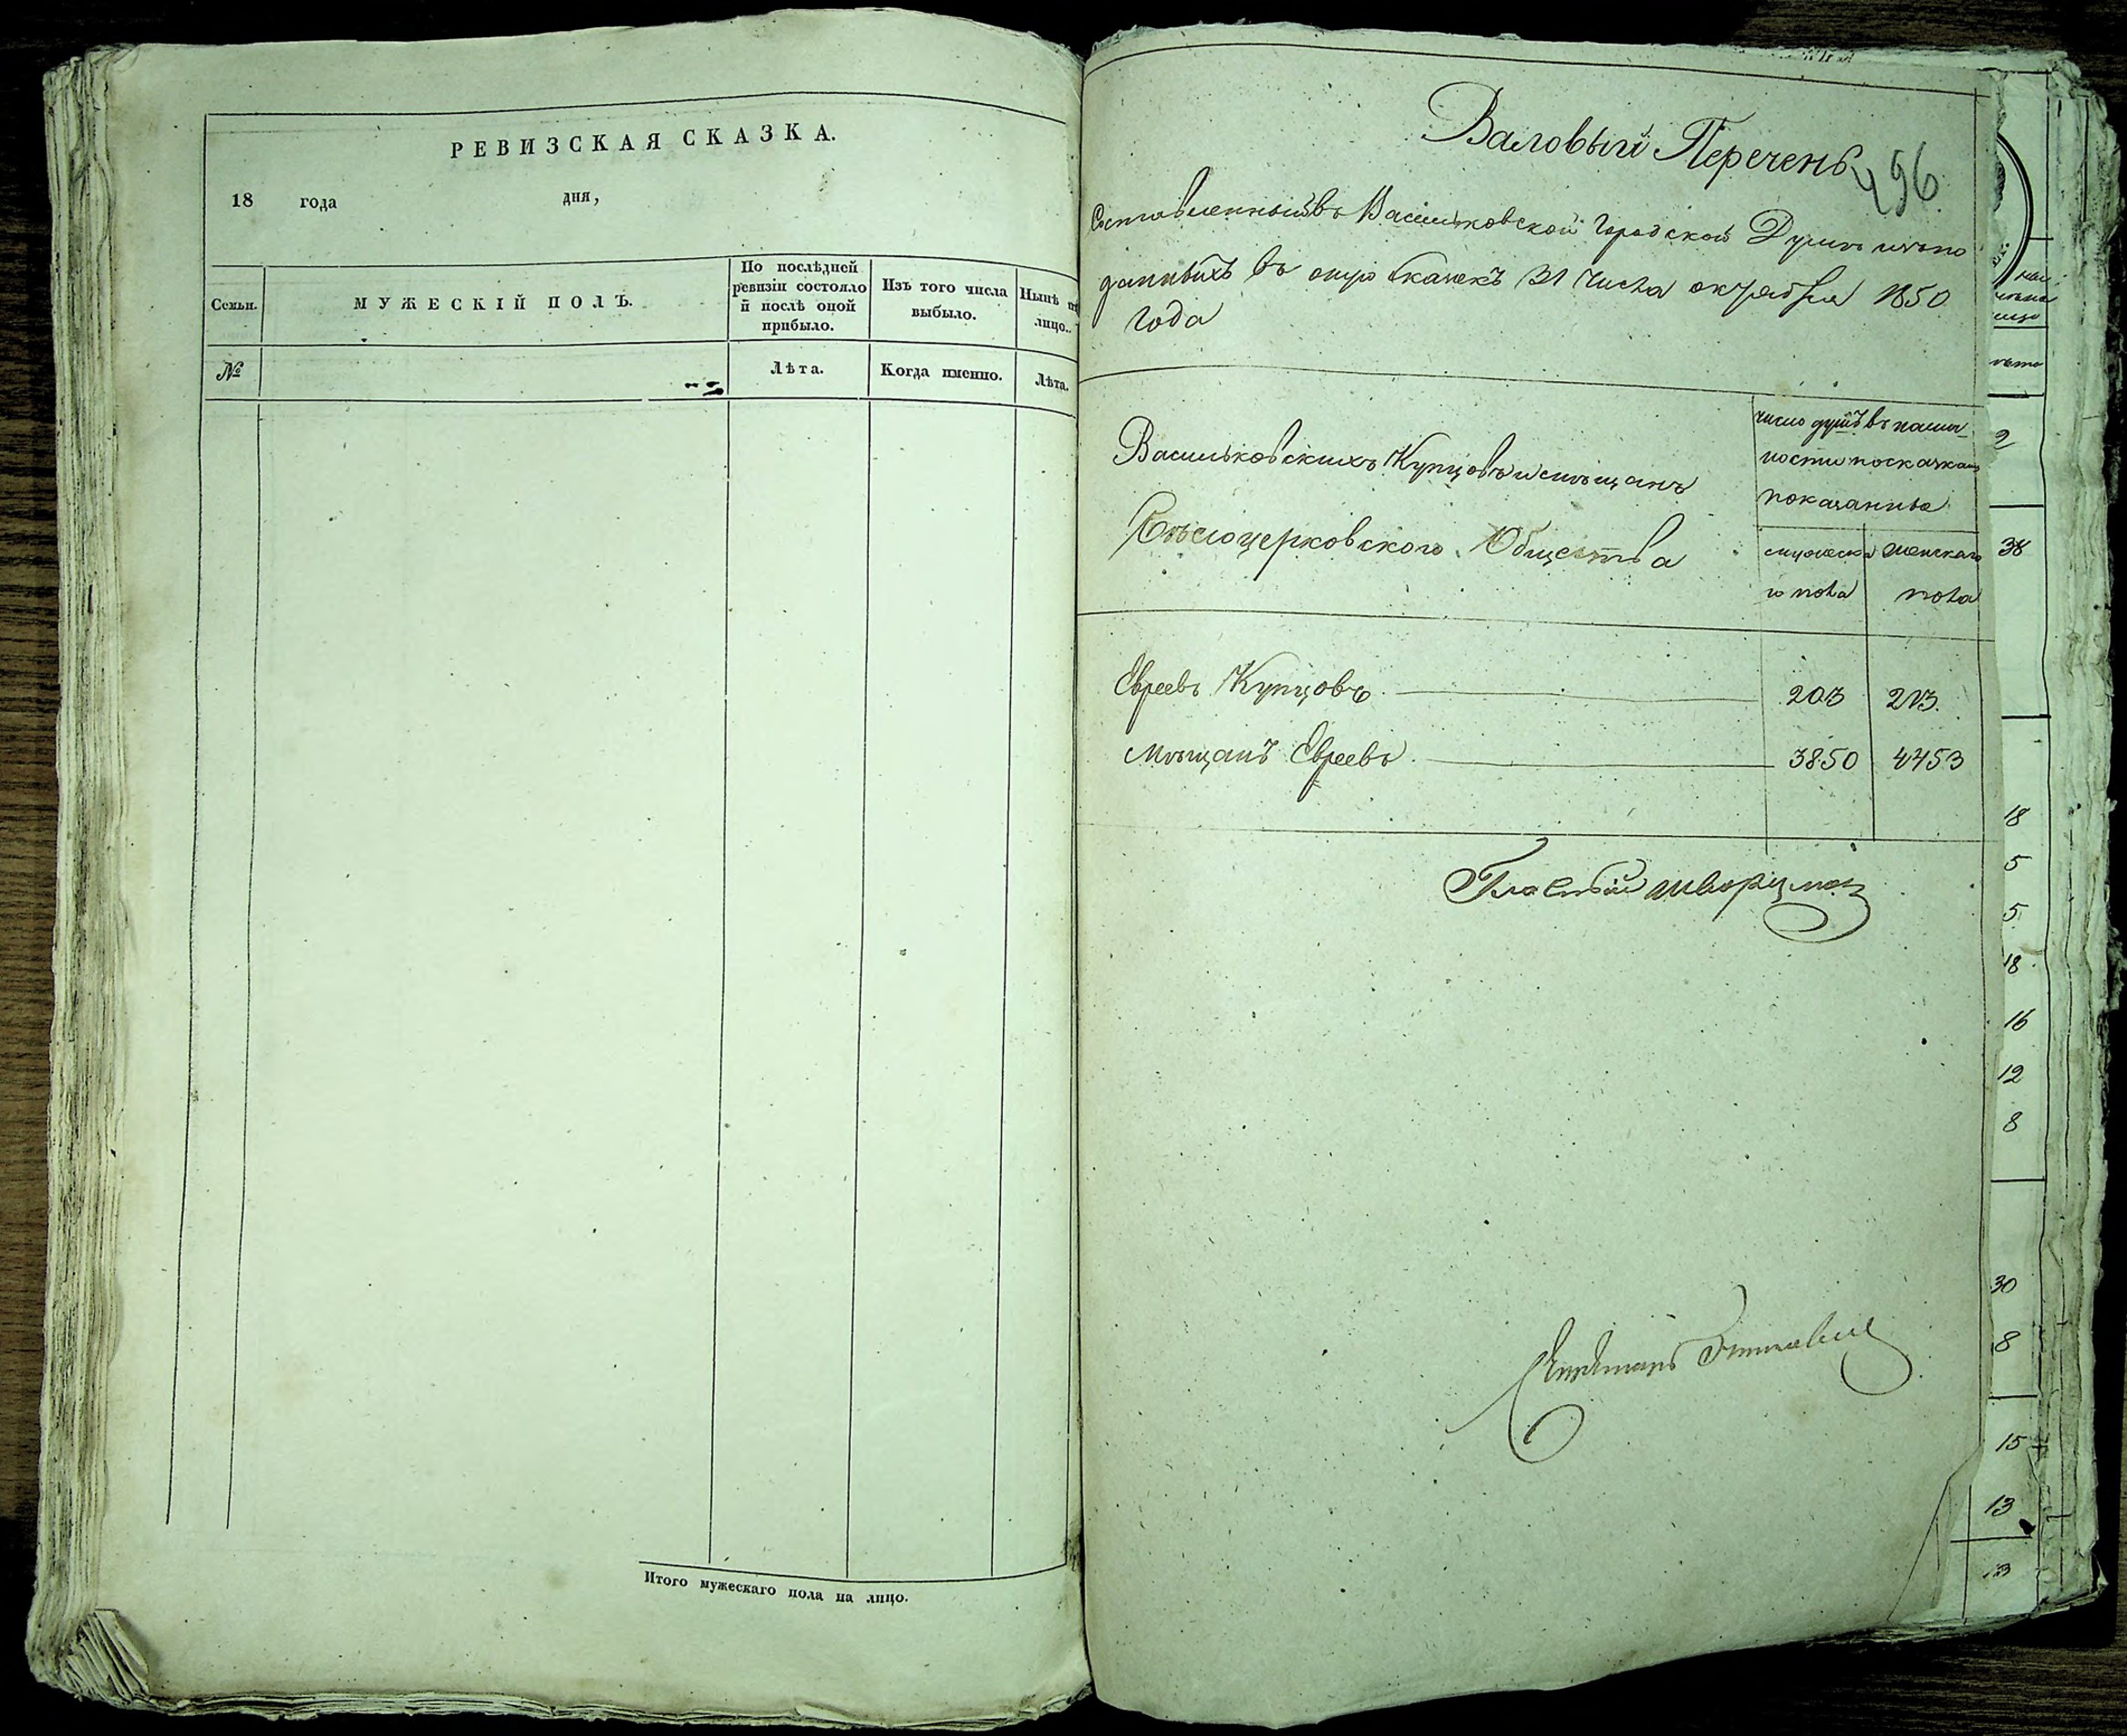 РЕВИЗСКАЯ СКАЗКА.
18 года дня,
Семьи.
МУЖЕСКІЙ ПОЛЪ.
По послѣдней
ревизіи состояло
й послѣ оной
прибыло.
Изъ того числа
выбыло.
Нынѣ на
лицо.
№
Лѣта.
Когда именно.
Лѣта.
Итого мужескаго пола на лицо.
Валовый Перечень
496
Составленный въ Васильковской Городской Думѣ изъ по
данныхъ въ оную сказокъ 31 числа октября 1850
года
Васильковскихъ Купцовъ и мѣщанъ
Бѣлоцерковского Общества
число душъ въ налич
ности по сказкамъ
показанные
мужеска
го пола
женскаго
пола
Евреевъ Купцовъ 203 213.
Мѣщанъ Евреевъ 3850 4453
2
38
18
5
5
18
16
12
8
30
8
15
13
13